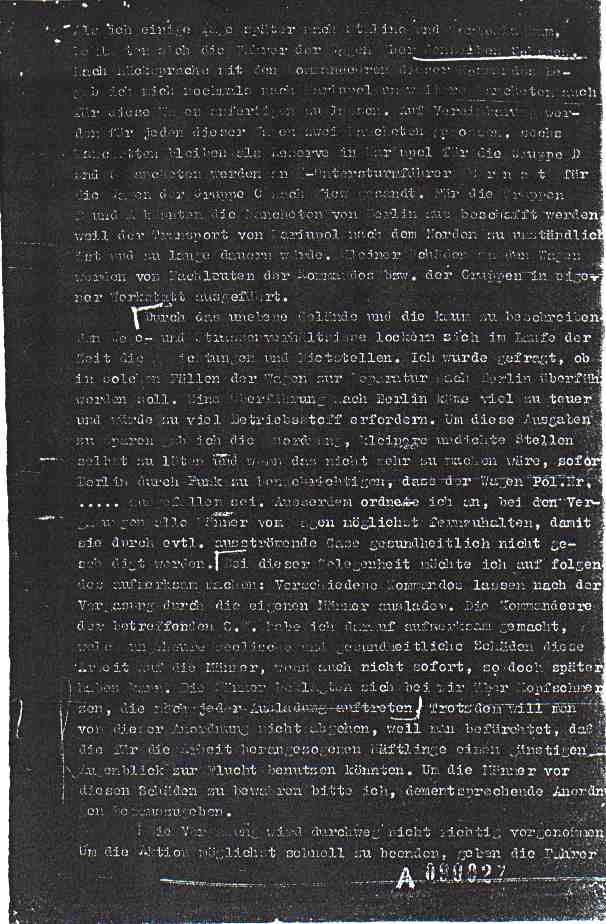 Als ich einige Tage später nach Stalino und
die Fahrer der Wagen über denselben Schaden.
Nach Rücksprache mit den Kommandeuren dieser Kommandos be-
gab ich mich nochmals nach Mariupol um weitere Mancheten auch
für diese Wagen anfertigen zu lassen. Auf Vereinbarung wer-
den für jeden dieser Wagen zwei Mancheten gegossen, sechs
Manchetten bleiben als Reserve in Mariupol für die Gruppe D
und Mancheten werden an Untersturmführer E r n s t für
die Wagen der Gruppe C nach Kiew gesandt. Für die Gruppen
B und A könnten die Mancheten von Berlin aus beschafft werden,
weil der Transport von Mariupol nach dem Norden zu umständlich
ist und zu lange dauern würde. Kleinere Schäden an den Wagen
werden von Fachleuten der Kommandos bzw. der Gruppen in eige-
ner Werkstatt ausgeführt.
Durch das unebene Gelände und die kaum zu beschreiben-
den Wege- und Strassenverhältnisse lockern sich im Laufe der
Zeit die Dichtungen und Nietstellen. Ich wurde gefragt, ob
in solchen Fällen der Wagen zur Reparatur nach Berlin überfüh
werden soll. Eine Überführung nach Berlin käme viel zu teuer
und würde zu viel Betriebsstoff erfordern. Um diese Ausgaben
zu sparen gab ich die Anordnung, kleinere undichte Stellen
selbst zu löten und wenn das nicht mehr zu machen wäre, sofor
Berlin durch Funk zu benachrichtigen, dass der Wagen Pol.Nr.
..... ausgefallen sei. Ausserdem ordnete ich an, bei den Ver-
gasungen alle Männer vom Wagen möglichst fernzuhalten, damit
sie durch evtl. ausströmende Gase gesundheitlich nicht ge-
schädigt werden. Bei dieser Gelegenheit möchte ich auf folgen
des aufmerksam machen: Verschiedene Kommandos lassen nach der
Vergasung durch die eigenen Männer ausladen. Die Kommandeure
der betreffenden S.K. habe ich darauf aufmerksam gemacht,
welch ungeheure seelische und gesundheitliche Schäden diese
Arbeit auf die Männer, wenn auch nicht sofort, so doch später
haben kann. Die Männer beklagten sich bei mir über Kopfschmer
zen, die nach jeder Ausladung auftreten. Trotzdem will man
von dieser Anordnung nicht abgehen, weil man befürchtet, daß
die für die Arbeit herangezogenen Häftlinge einen günstigen
Augenblick zur Flucht benutzen könnten. Um die Männer vor
diesen Schäden zu bewahren bitte ich, dementsprechende Anordn
gen herauszugeben.
Die Vergasung wird durchweg nicht richtig vorgenommen
Um die Aktion möglichst schnell zu beenden, geben die Fahrer
A 090027